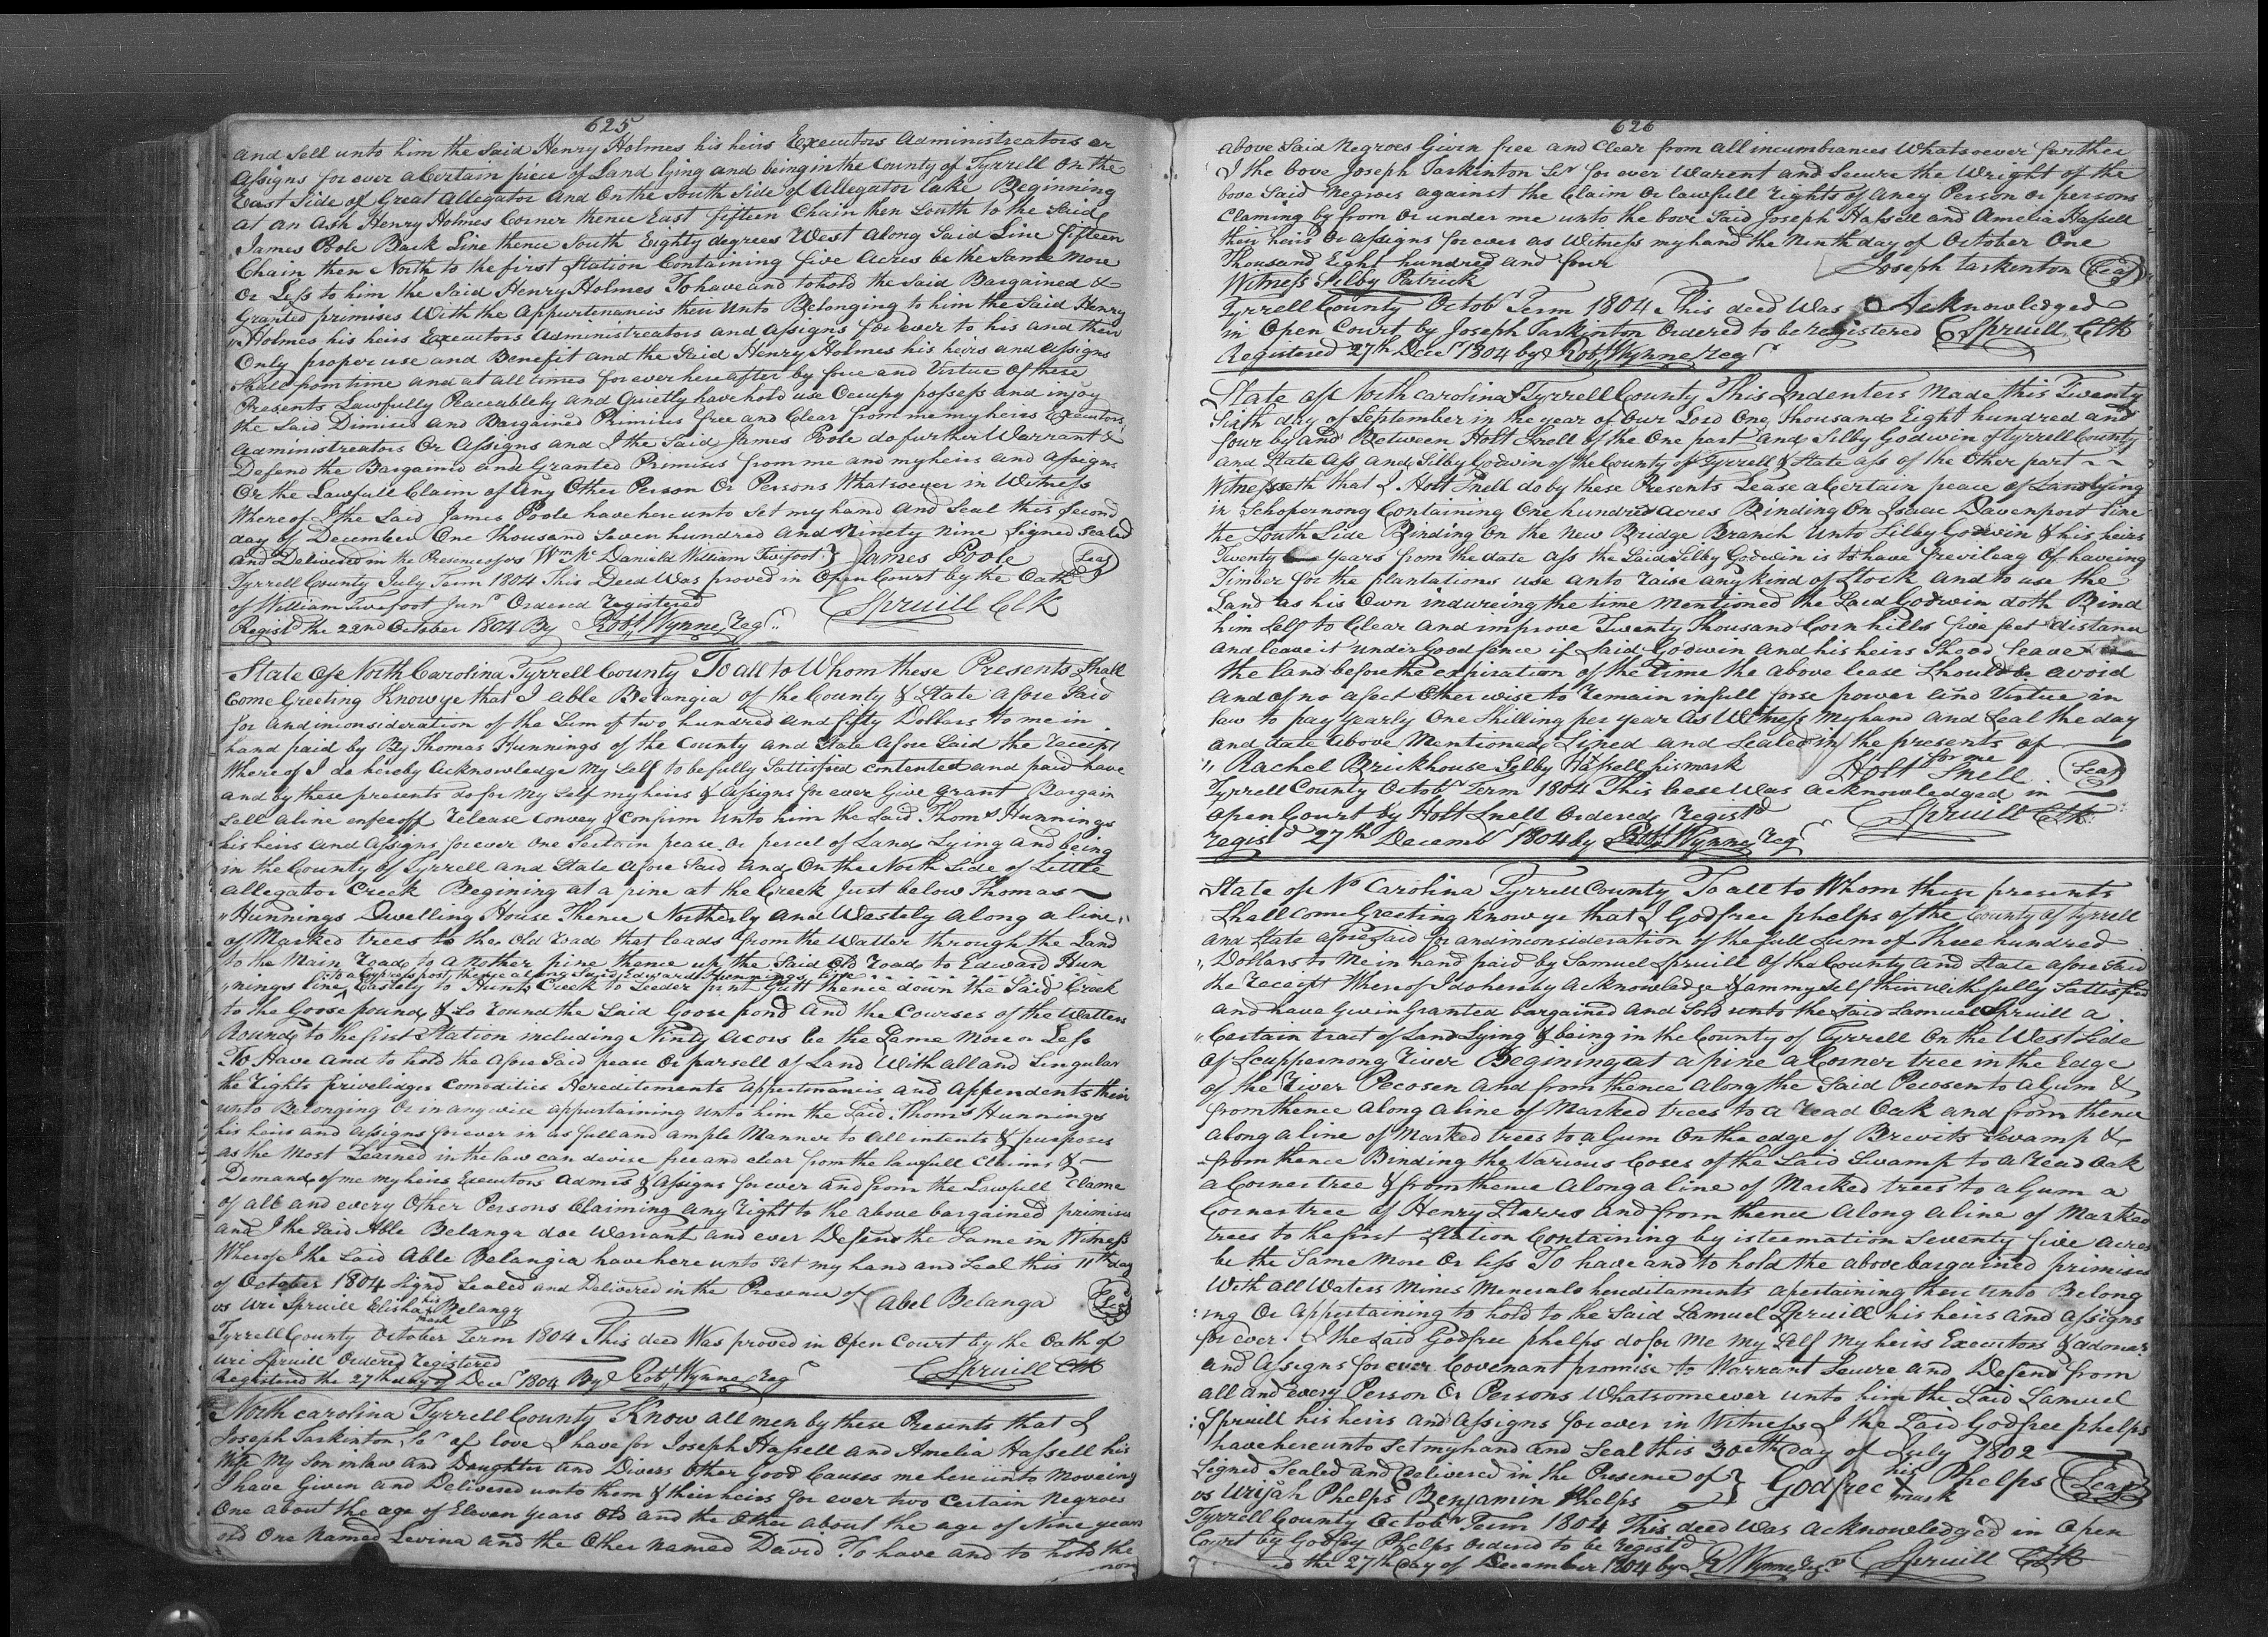 625
and Sell unto him the Said Henry Holmes his heirs Executors Administreators or
Assigns for ever a Certain piece of Land lying and being in the County of Tyrrell On the
East Side of Great Allegator And On the South Side of Allegator lake Beginning
at an Ash Henry Holmes Corner thence East fifteen Chain then South to the Said
James Poole Back Line thence South Eighty degrees West along Said Line fifteen
Chain then North to the first Station Containing five Acres be the Same More
Or Less to him the Said Henry Holmes To have and to hold the Said Bargained &
Granted premises With the Appurtenances their unto Belonging to him the Said Henry
Holmes his heirs Executors Administreators and Assigns for ever to his and their
Only proper use and Benefit and the Said Henry Holmes his heirs and Assigns
Shall from time and at all times for ever hereafter by force and Virtue of these
Presents Lawfully Peaceablely and Quietly have hold use Occupy possess and injoy
the Said Dimised and Bargained Primises free and Clear from me my heirs Executors
Administreators Or Assigns and I the Said James Poole do further Warrant &
Defend the Bargained and Granted Primises from me and my heirs and Assigns
Or the Lawfull Claim of Any Other Person Or Persons Whatsoever in Witness
Where of I the Said James Poole have here unto Set my hand and Seal this Second
day of December One thousand Seven hundred and Ninety nine Signed Sealed
and Delivered in the Presence of us Wm Mc Daniels William Twifoot } James Poole Seal
Tyrrell County July Term 1804 This Deed Was proved in Open Court by the Oath
of William Twefoot Junr Ordered Registered C Spruill Clk
Registd the 22nd October 1804 By Robt Wynne Regr
State of North Carolina Tyrrell County To all to Whom these Presents Shall
Come Greeting Know ye that I able Belangia of the County & State afore Said
for And in consideration of the Sum of two hundred and fifty Dollars to me in
hand paid by By Thomas Hunnings of the County and State afore Said the receipt
Where of I do hereby Acknowledge My Self to be fully Sattisfied contented and paid have
and by these presents do for My Self my heirs & Assigns for ever Give grant Bargain
Sell aline enfeoff release Convey & Confirm Unto him the Said Thoms Hunnings
his heirs and Assigns for ever One Sertain pease Or percel of Land Lying and being
in the County of Tyrrell and State afore Said and On the North Side of Little
Allegator Creek Begining at a pine at the Creek Just below Thomas
Hunnings Dwelling House Thence Northerly And Westely along a line
of Marked trees to the Old road that leads from the Watter through the Land
to the Main road to a nother pine thence up the Said Old road to Edward Hun
to a Cypress post thence along Said Edward Hunnings line
nings line Eastely to Hunts Creek to Leeder pint Gutt thence down the Said Creek
to the Goose pound & So round the Said Goose pond And the Courses of the Watters
Round to the first Station including Ninty acors be the Same More or Less
To Have and to hold the afore Said pease Or parsell of Land With all and Singular
the rights priveliges Comodities Hereditements appertinancis and Appendents their
unto Belonging Or in any wise appurtaining unto him the Said Thoms Hunnings
his heirs and Assigns for ever in as full and ample Manner to all intents & purposes
as the Most Learned in the law can devise free and clear from the lawfull Claims &
Demands of me my heirs Executors Admrs & Assigns for ever and from the Lawfull Clame
of all and every Other Persons Claiming Any right to the above bargained primises
and I the Said Able Belanga doe Warrant and ever Defend the Same in Witness
Whereof I the Said Able Belangia have here unto Set my hand and Seal this 11th day
of October 1804 Signd Sealed and Delivered in the Presence of
us Uri Spruill Elisha his mark Belangy Abel Belanga Seal
Tyrrell County October Term 1804 This deed Was proved in Open Court by the Oath of
Uri Spruill Ordered registered C Spruill Clk
Registered the 27th day of Decr 1804 By Robt Wynne Regr
North Carolina Tyrrell County Know all men by these Presents that I
Joseph Tarkinton Ser of love I have for Joseph Hassell and Amelia Hassell his
Wife My Son in law and Daughter and Divers Other Good Causes me here unto Moveing
I have Given and Delivered unto them & their heirs for ever two Certain Negroes
One about the age of Eleven years Old and the Other about the age of Nine years
old One Named Levina and the Other Named David To have and to hold the
626
above Said Negroes Given free and Clear from all incumbrances Whatsoever further
I the bove Joseph Tarkinton Ser for ever Warent and Secure the Wright of the
bove Said Negroes against the Claim Or lawfull rights of Aney Person or persons
Claming by from Or under me unto the bove Said Joseph Hassell and Amelia Hassell
their heirs Or Assigns for ever as Witness my hand the Ninth day of October One
Thousand Eight hundred and four Joseph Tarkenton Seal
Witness Selby Patrick
Tyrrell County Octobr Term 1804 This deed Was Acknowledged
in Open Court by Joseph Tarkinton Ordered to be registered C Spruill Clk
Registered 27th Decer 1804 by Robt Wynne regr
State of North Carolina Tyrrell County This Indenters Made this Twenty
Sixth day of September in the year of Our Lord One Thousand Eight hundred and
four by and Between Holt Snell of the One part and Silby Godwin of Tyrrell County
and State afs and Silby Godwin of the County of Tyrrell & State afs of the Other part
Witnesseth that I Holt Snell do by these Presents Lease a Certain peace of Land lying
in Schopernong Containing One hundred acres Binding On Isaac Davenport line
the South Side Binding On the New Bridge Branch Unto Silby Godwin & his heirs
Twenty years from the date afs the Said Silby Godwin is to have previleag Of haveing
Timber for the plantations use anto raise any kind of Stock And to use the
Land as his Own indureing the time Mentioned the Said Godwin doth Bind
him Self to Clear and improve Twenty Thousand Corn hills five feet distance
and leave it under Good fence if Said Godwin and his heirs Shood leave
the land before the expiration of the time the above lease Should be avoid
and of no afect Otherwise to remain in full forse power and Virtue in
law to pay yearly One Shilling per year As Witness My hand and Seal the day
and date above Mentioned Sined and Sealed in the presents of
Rachel Brickhouse Selby Hassell his mark for me Holt Snell Seal
Tyrrell County Octobr Term 1804 This lease Was Acknowledged in
Open Court by Holt Snell Ordered registd C Spruill Clk
registd 27th Decembr 1804 by Robt Wynne regr
State of No Carolina Tyrrell County To all to Whom these presents
Shall come Greeting Know ye that I Godfree phelps of the County of Tyrrell
and State afore Said for and inconsideration of the full Sum of three hundred
Dollars to Me in hand paid by Samuel Spruill of the County and State afore Said
the receipt Whereof I do hereby Acknowledge & am my Self therewith fully Sattisfied
and have Given Granted bargained And Sold unto the Said Samuel Spruill a
Certain tract of Land Lying & being in the County of Tyrrell On the West Side
Of Scuppernong River Begining at a pine a Corner tree in the Edge
of the River Pecosen And from thence along the Said Pecosen to a Gum &
from thence along a line of Marked trees to a read Oak and from thence
along a line of Marked trees to a Gum On the edge of Brevits Swamp &
from thence Binding the Various Coses of the Said Swamp to a read Oak
a Corner tree & from thence along a line of Marked trees to a Gum a
Corner tree of Henry Starrs and from thence along a line of Marked
trees to the first Station Containing by isteemation Seventy five Acres
be the Same More Or less To have and to hold the above bargained primises
With all Waters Mines Menerals hereditaments apertaining there unto Belong
ing Or Appertaining to hold to the Said Samuel Spruill his heirs and Assigns
for ever I the Said Godfree phelps do for Me My Self My heirs Executors & admnrs
and Assigns for ever Covenant promise to Warrant Secure and Defend from
all and every Person Or Persons Whatsomeever unto him the Said Samuel
Spruill his heirs and Assigns for ever in Witness I the Said Godfree phelps
have here unto Set my hand and Seal this 30eth day of July 1802
Signed Sealed and Delivered in the Presence of } Godfree his mark Phelps Seal
us Urijah Phelps Benjamin Phelps
Tyrrell County Octobr Term 1804 This deed Was Acknowledg'd in Open
Court by Godfry Phelps Ordered to be registd
the 27th day of December 1804 by R Wynne Regr C Spruill Clk